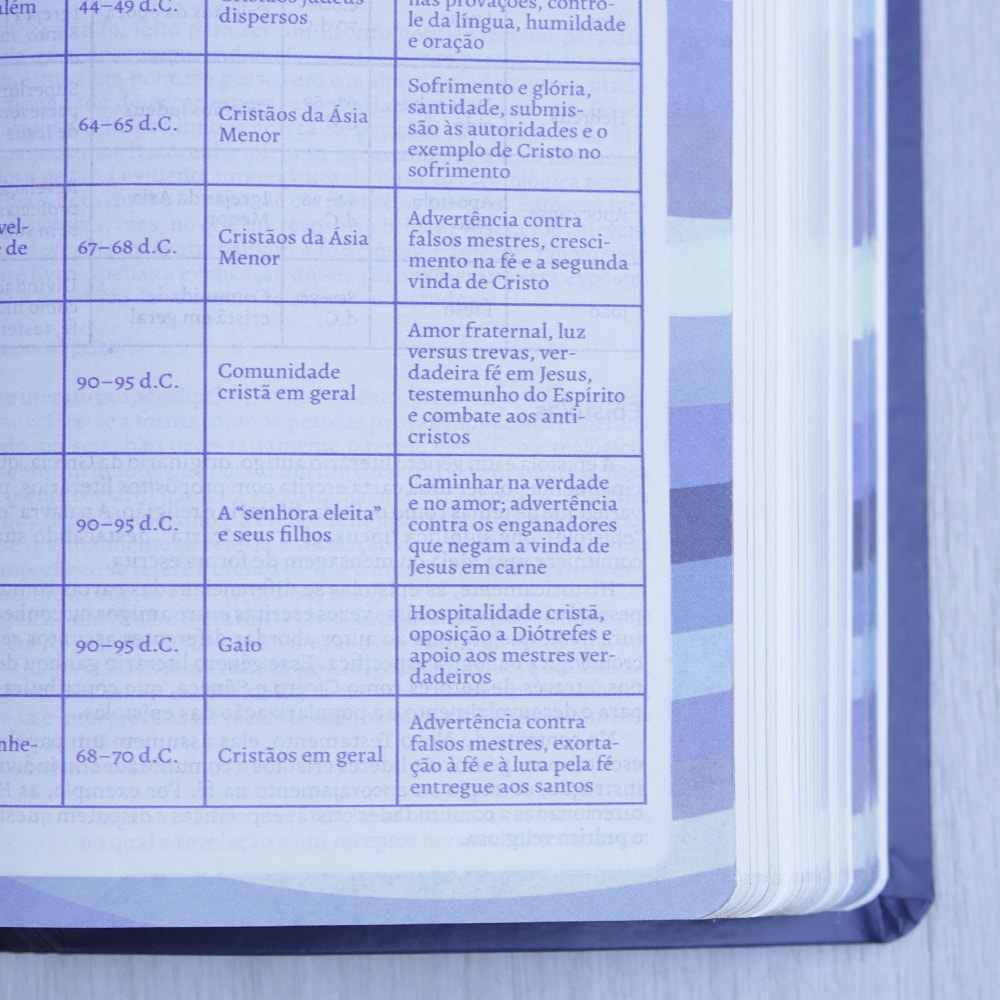 além
44–49 d.C.
Cristãos judeus
dispersos
nas provações, contro-
le da língua, humildade
e oração
64–65 d.C.
Cristãos da Ásia
Menor
Sofrimento e glória,
santidade, submis-
são às autoridades e o
exemplo de Cristo no
sofrimento
vel-
de
67–68 d.C.
Cristãos da Ásia
Menor
Advertência contra
falsos mestres, cresci-
mento na fé e a segunda
vinda de Cristo
90–95 d.C.
Comunidade
cristã em geral
Amor fraternal, luz
versus trevas, ver-
dadeira fé em Jesus,
testemunho do Espírito
e combate aos anti-
cristos
90–95 d.C.
A “senhora eleita”
e seus filhos
Caminhar na verdade
e no amor; advertência
contra os enganadores
que negam a vinda de
Jesus em carne
90–95 d.C.
Gaio
Hospitalidade cristã,
oposição a Diótrefes e
apoio aos mestres ver-
dadeiros
nhe-
68–70 d.C.
Cristãos em geral
Advertência contra
falsos mestres, exorta-
ção à fé e à luta pela fé
entregue aos santos